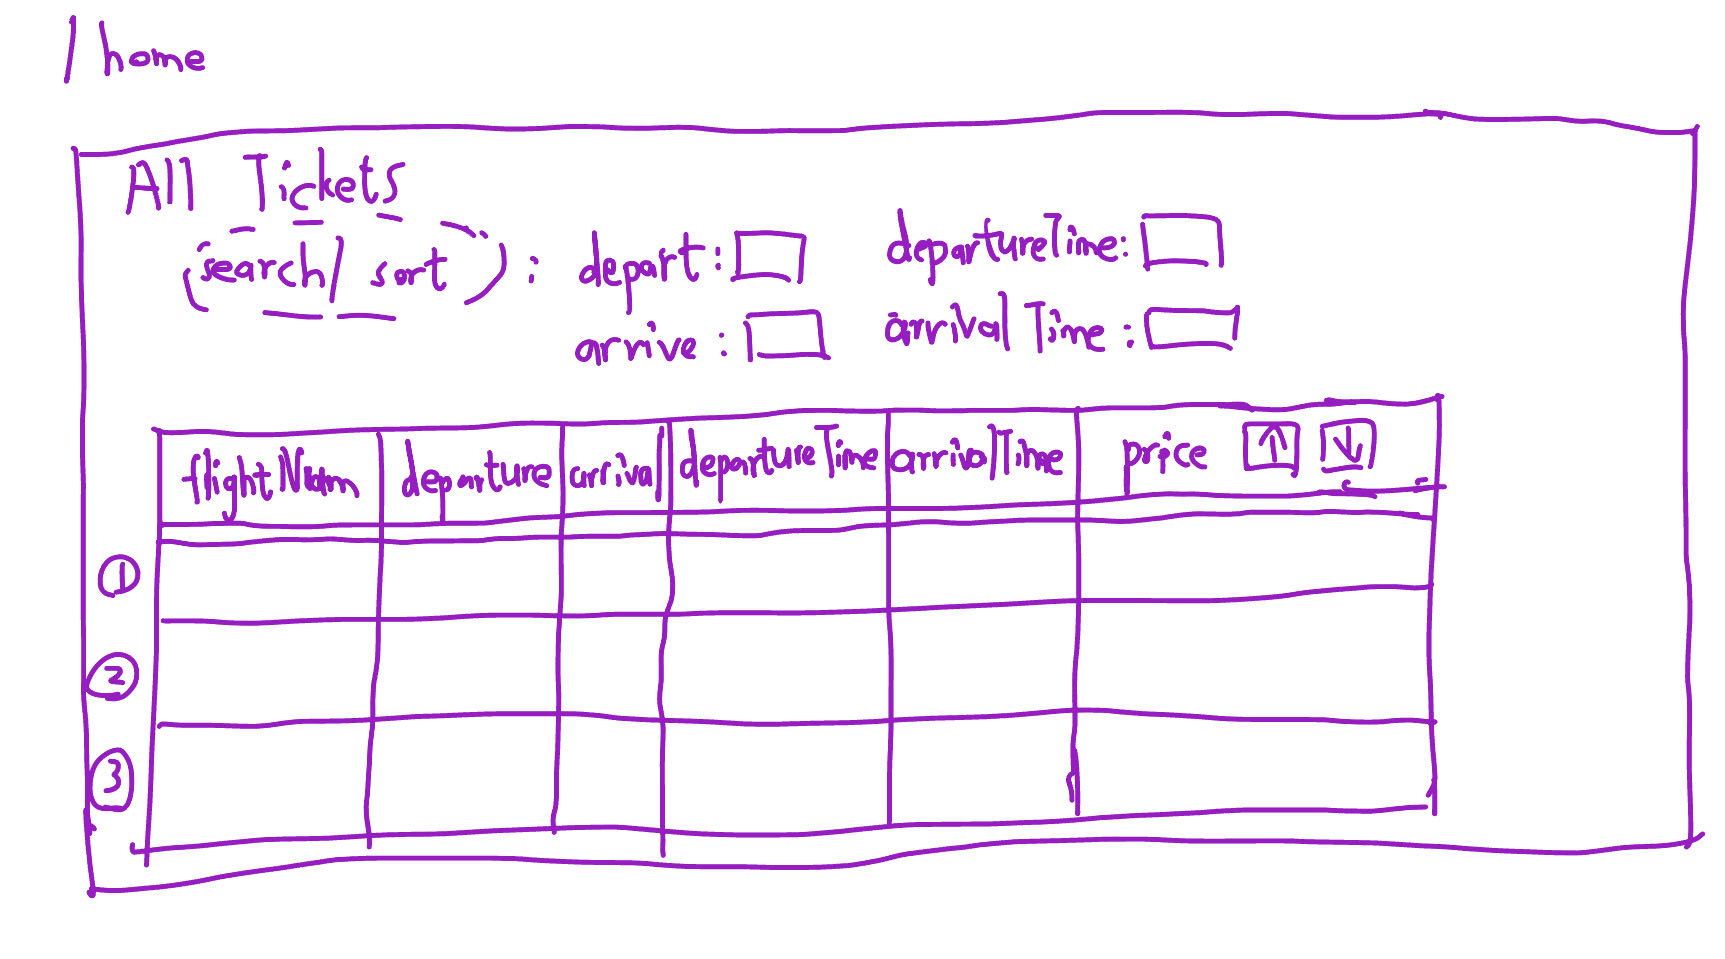 /home
All Tickets
(search/sort): depart: departureTime:
arrive: arrivalTime:
flightNum departure arrival departureTime arrivalTime price ↑ ↓
1
2
3